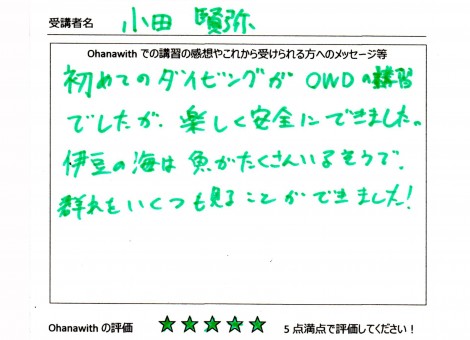 受講者名 小田 賢弥
Ohanawith での講習の感想やこれから受けられる方へのメッセージ等
初めてのダイビングが OWDの講習
でしたが、楽しく安全にできました。
伊豆の海は魚がたくさんいるそうで、
群れをいくつも見ることができました!
Ohanawith の評価 ★★★★★ 5点満点で評価してください!